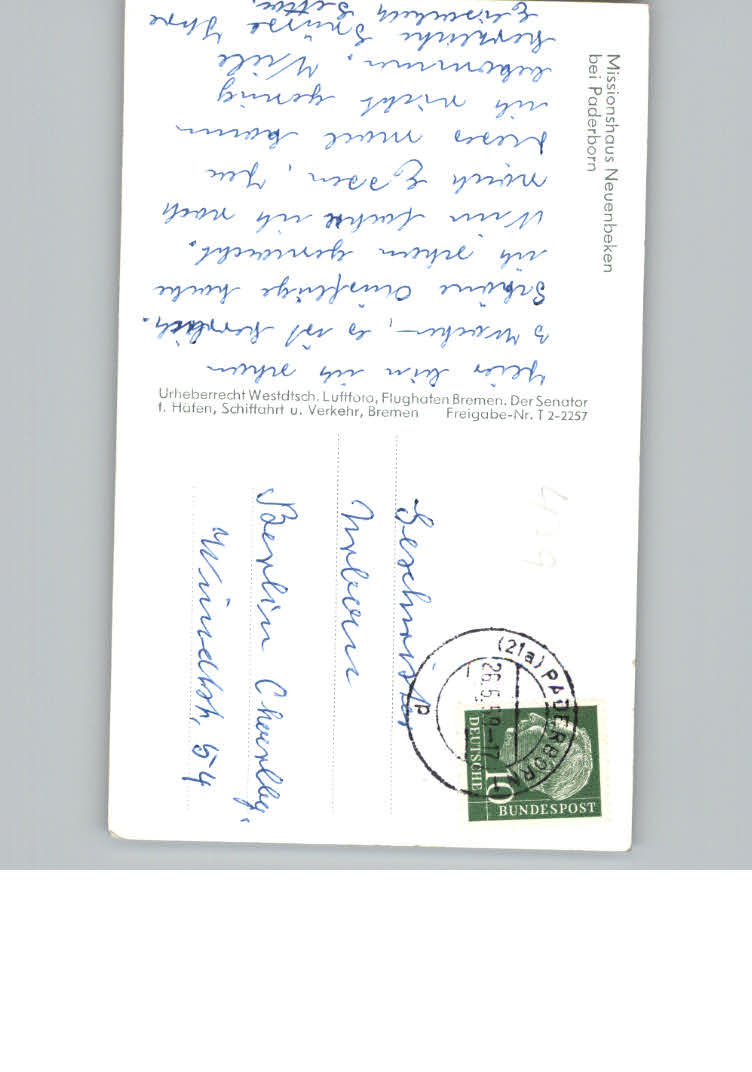 Missionshaus Neuenbeken
bei Paderborn
Hier bin ich schon
3 Wochen, es ist herrlich.
Schöne Ausflüge habe
ich schon gemacht.
Nun fahre ich noch
nach Essen,
dieses mal kann
ich nicht genug
bekommen. Viele
herzliche Grüsse Ihre
Elisabeth
Urheberrecht Westdtsch. Luftfoto, Flughafen Bremen. Der Senator
f. Häfen, Schiffahrt u. Verkehr, Bremen Freigabe-Nr. T 2-2257
(21a) PADERBORN
26.6.59-17
p
DEUTSCHE
BUNDESPOST
10
Geschwister
Urbans
Berlin Charlbg.
Wundtstr. 54